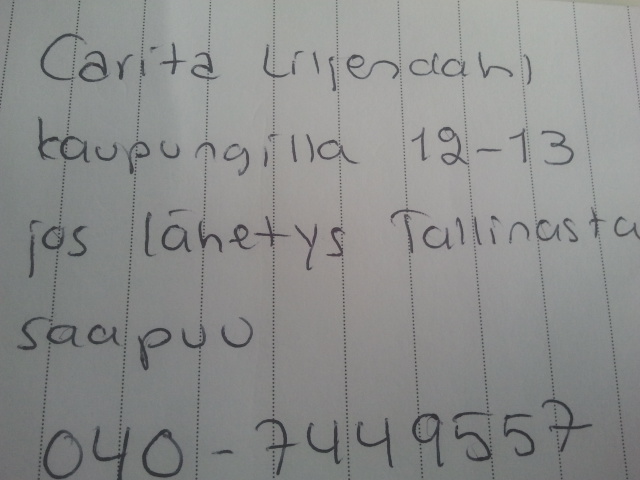 Carita Liljendahl
kaupungilla 12-13
jos lähetys Tallinasta
saapuu
040-7449557